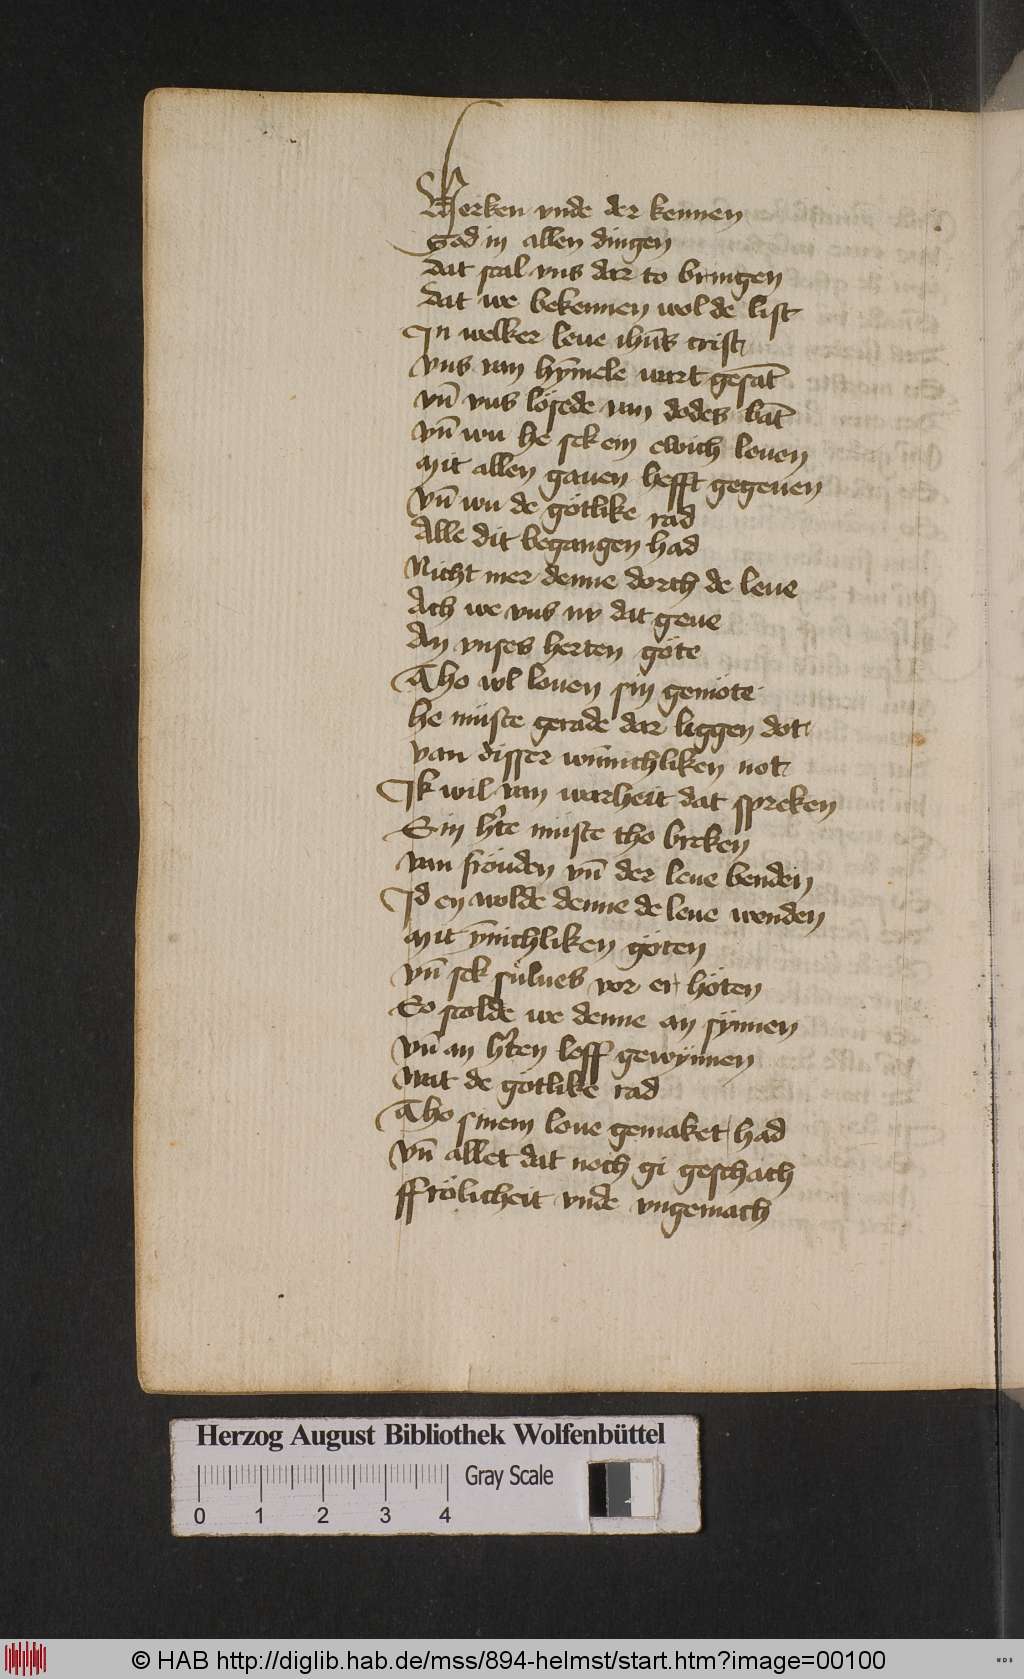 Merken vnde der kennen
God in allen dingen
Dat scal vns dar to bringen
Dat we bekennen wol de list
In welker leue ihus crist
vns van hymele wart gesat
vn vns lösede van dodes bat
vn wu he sek em ewich leuen
Mit allen gauen hefft gegeuen
Vn wu de götlike rad
Alle dit begangen had
Nicht mer denne dorch de leue
Ach we vns nv dat geue
An vnses herten göte
Tho wl louen sin gemöte
he müste gerade dar liggen dot
van disser wunnichliken not
Ik wil van warheit dat spreken
Sin hte müste tho breken
van fröuden vn der leue benden
Id en wolde denne de leue wenden
Mit ynnichliken göten
vn sek sulues vor er höten
So scolde we denne an synnen
Vn an hten loff gewynnen
Wat de gotlike rad
Tho sinem loue gemaket had
Vn allet dat noch gi geschach
ffrölicheit vnde vngemach
Herzog August Bibliothek Wolfenbüttel
Gray Scale
0 1 2 3 4
© HAB http://diglib.hab.de/mss/894-helmst/start.htm?image=00100